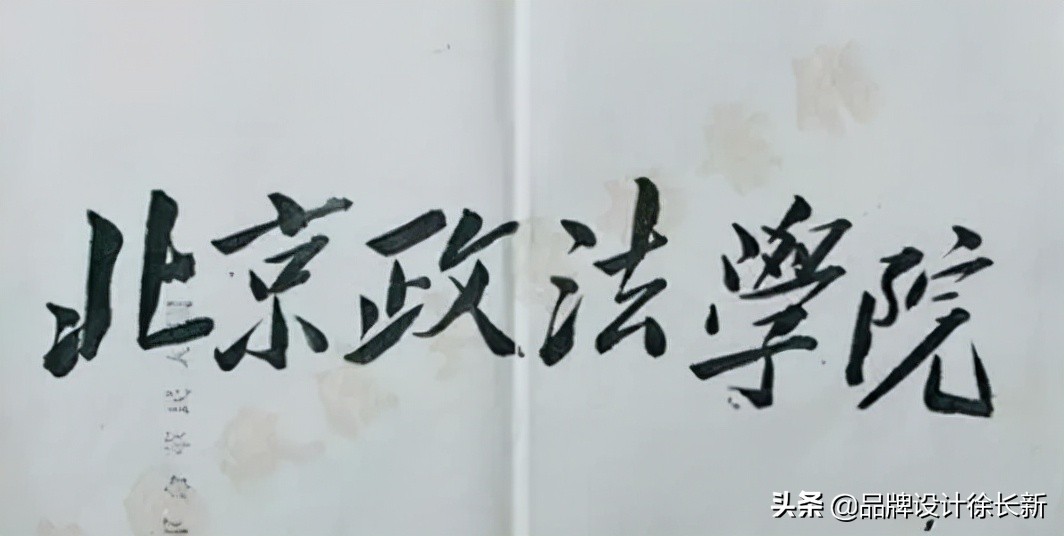 北京政法學院
头条 @品牌设计徐长新